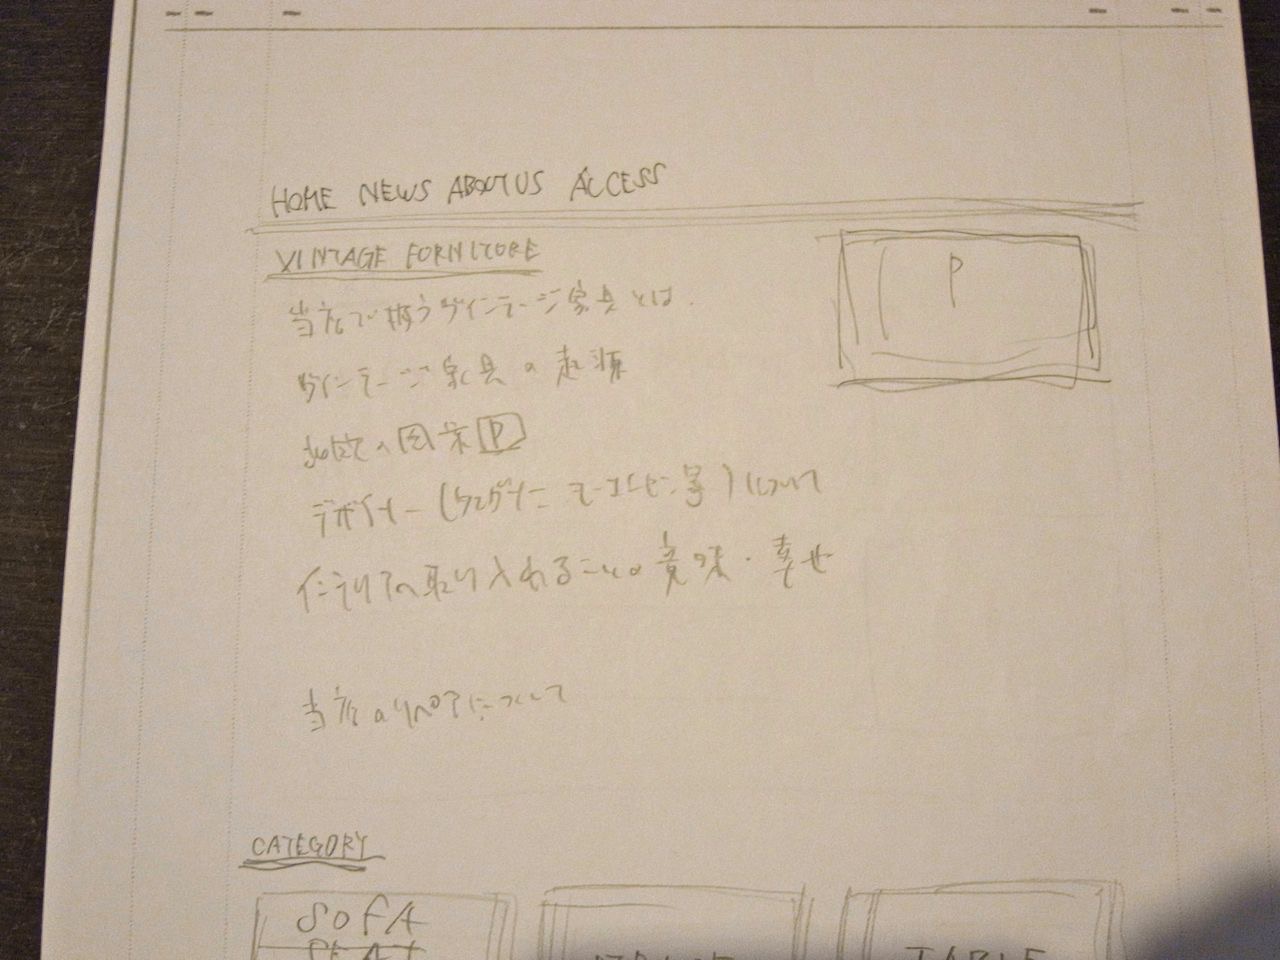 HOME NEWS ABOUT US ACCESS
VINTAGE FORNITORE
P
当店で扱うヴィンテージ家具とは.
ヴィンテージ家具の起源
の図案 P
デザイナー( )について
インテリアへ取り入れることの意味・幸せ
当店のリペアについて
CATEGORY
SOFA
SEAT
TABLE